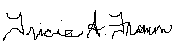 Tricia A. Fromm